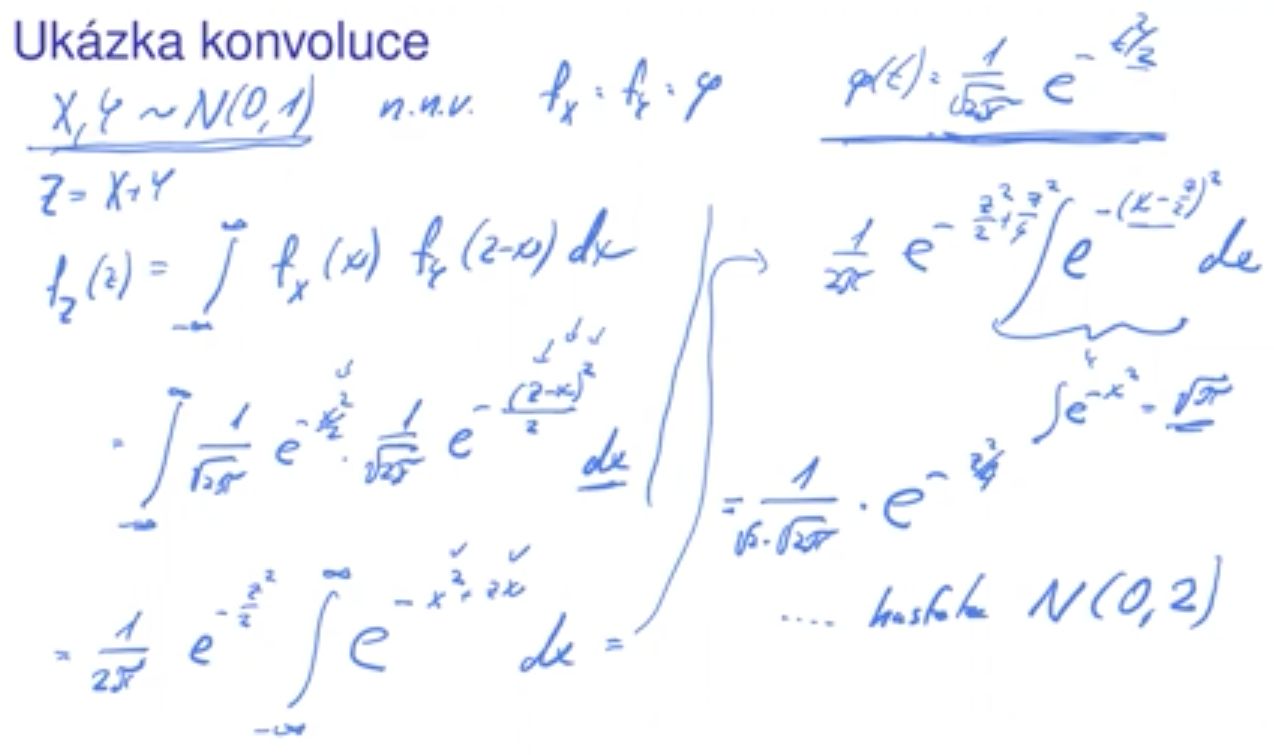 Ukázka konvoluce
X, Y ~ N(0,1) n.n.v. f_X = f_Y = φ φ(t) = \frac{1}{\sqrt{2π}} e^{-t²/2}
Z = X+Y
f_Z(z) = ∫_{-∞}^{∞} f_X(x) f_Y(z-x) dx
= ∫_{-∞}^{∞} \frac{1}{\sqrt{2π}} e^{-x²/2} · \frac{1}{\sqrt{2π}} e^{-\frac{(z-x)²}{2}} dx
= \frac{1}{2π} e^{-\frac{z²}{2}} ∫_{-∞}^{∞} e^{-x²+zx} dx =
\frac{1}{2π} e^{-\frac{z²}{2}+\frac{z²}{4}} ∫ e^{-(x-\frac{z}{2})²} dx
∫ e^{-x²} = \sqrt{π}
= \frac{1}{\sqrt{2}·\sqrt{2π}} · e^{-z²/4}
.... hustota N(0,2)